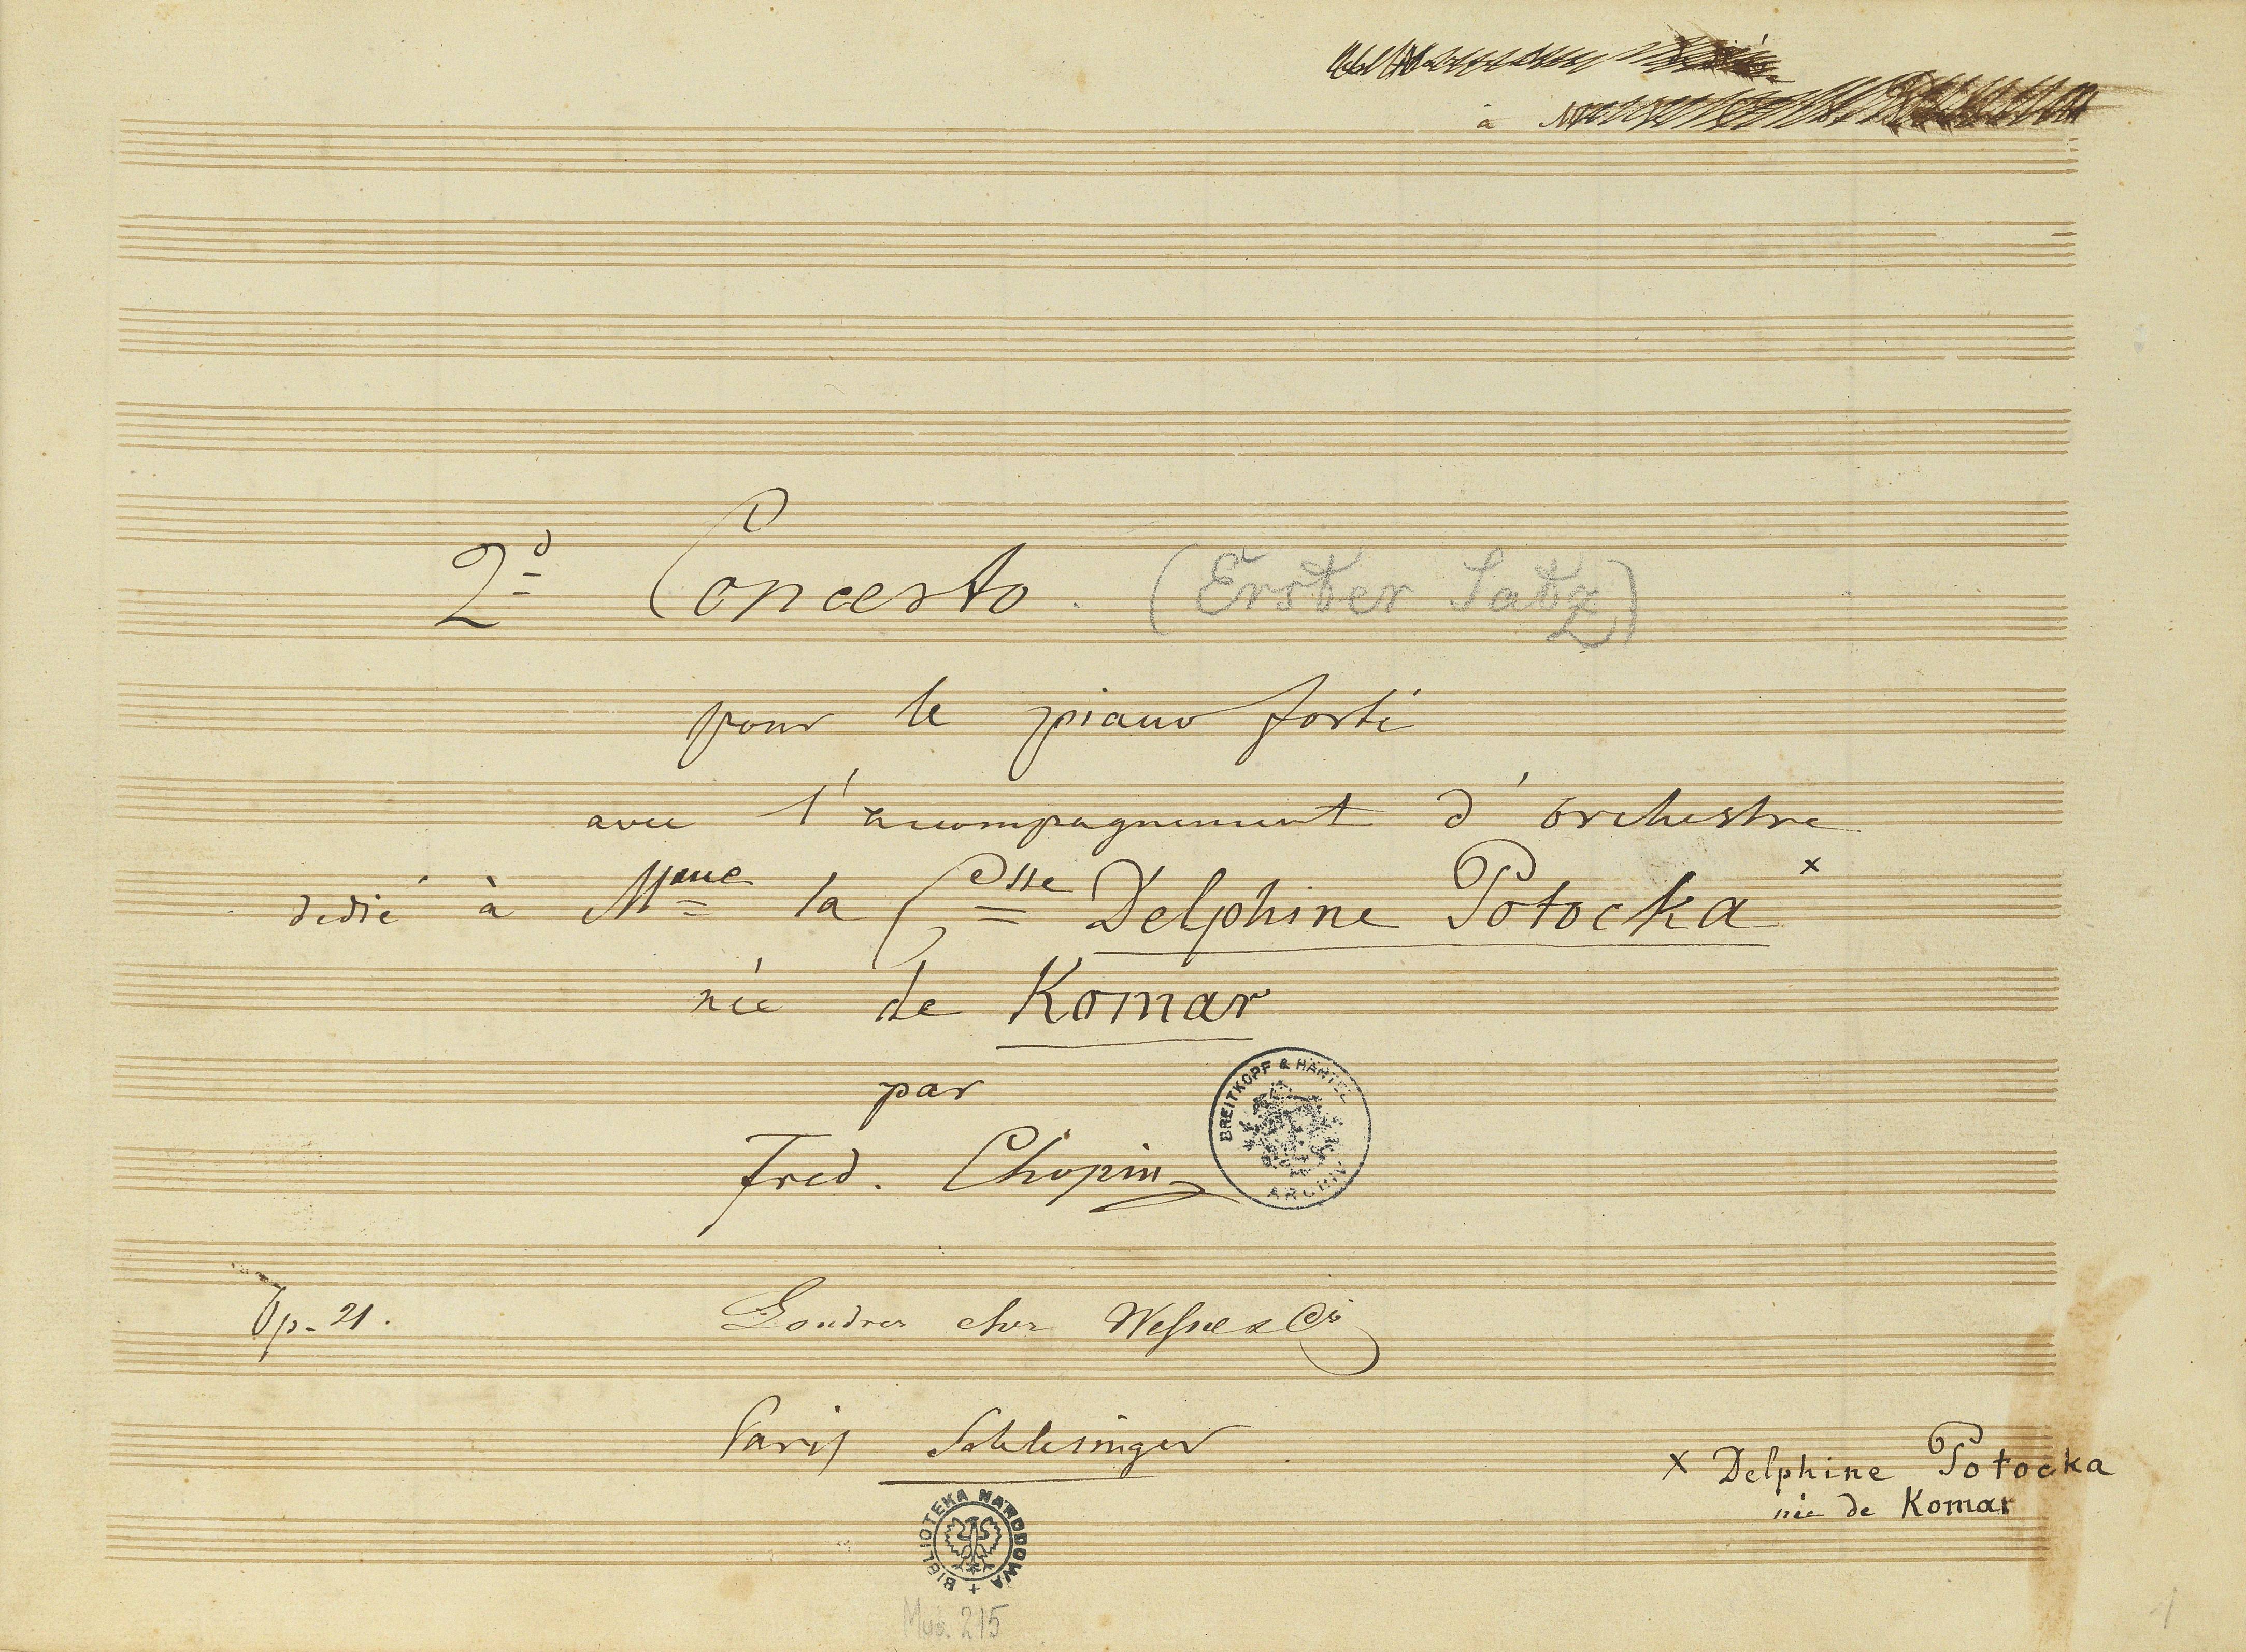 à
2d Concerto. (Erster Satz)
pour le piano forté
avec l'accompagnement d'orchestre
dedié à Mme la Csse Delphine Potocka x
née de Komar
par
Fred. Chopin
BREITKOPF & HÄRTEL
ARCHIV
Op. 21.
Londres chez Wessel & Co
Paris Schlesinger
x Delphine Potocka
née de Komar
BIBLIOTEKA NARODOWA
Mus. 215
1